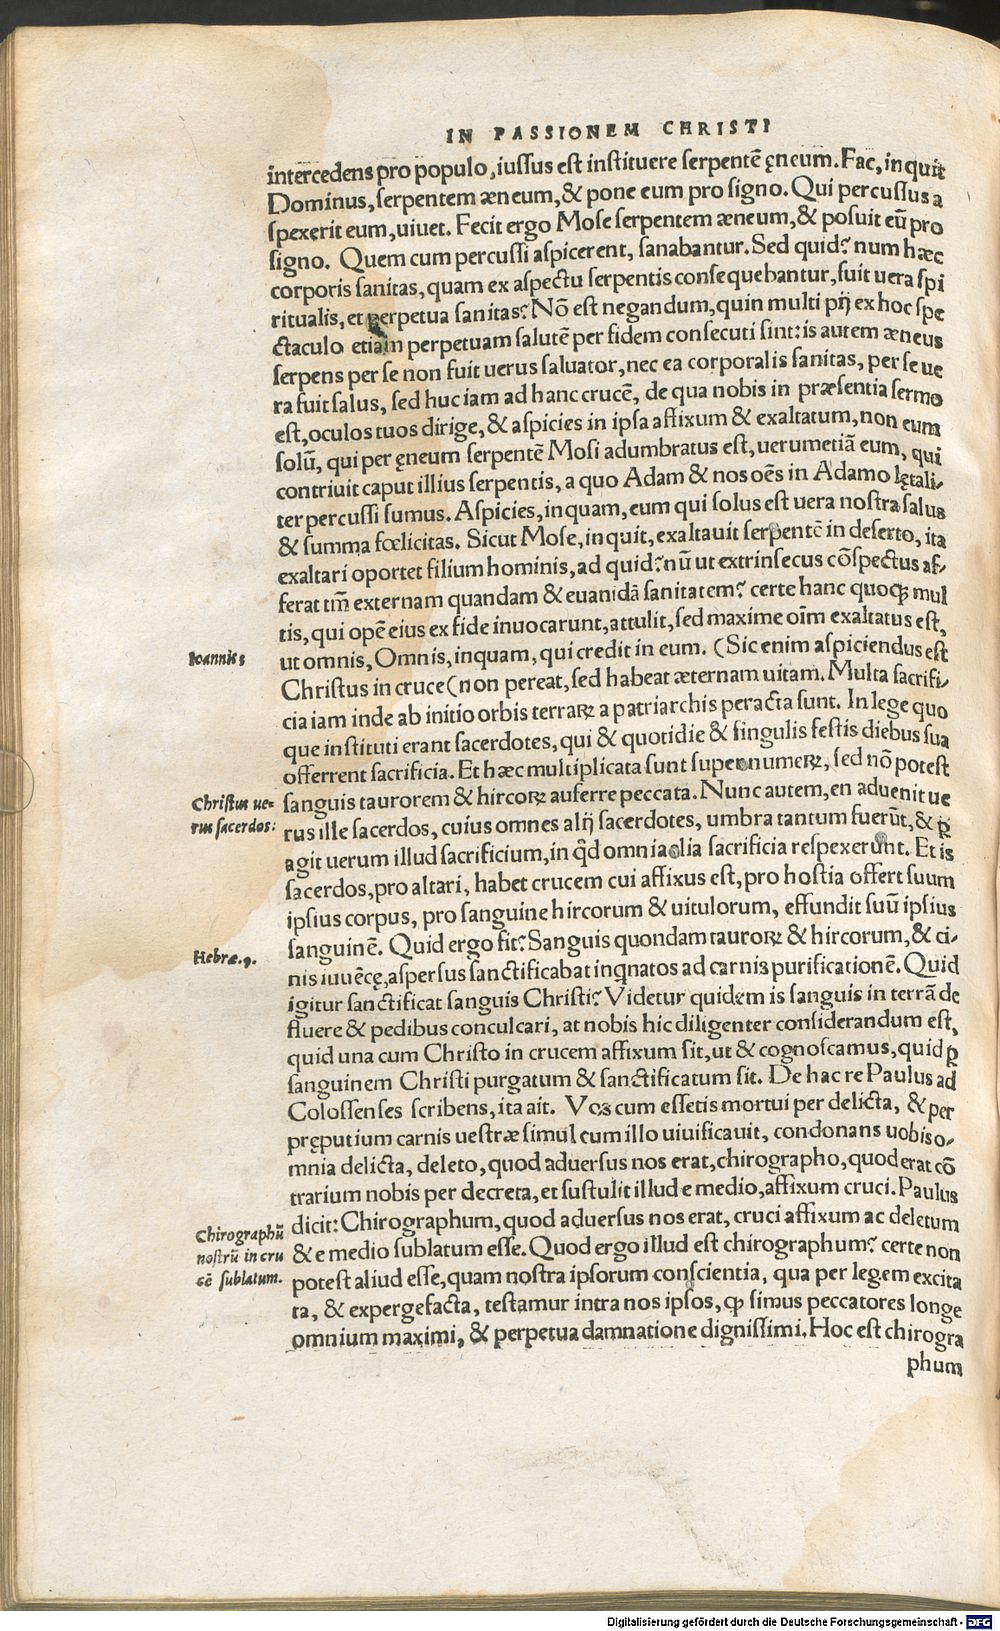 IN PASSIONEM CHRISTI
intercedens pro populo, iussus est instituere serpentē ęneum. Fac, inquit
Dominus, serpentem æneum, & pone eum pro signo. Qui percussus a
spexerit eum, uiuet. Fecit ergo Mose serpentem æneum, & posuit eū pro
signo. Quem cum percussi aspicerent, sanabantur. Sed quid? num hæc
corporis sanitas, quam ex aspectu serpentis consequebantur, fuit uera spi
ritualis, et perpetua sanitas? Nō est negandum, quin multi pij ex hoc spe
ctaculo etiam perpetuam salutē per fidem consecuti sint: is autem æneus
serpens per se non fuit uerus saluator, nec ea corporalis sanitas, per se ue
ra fuit salus, sed huc iam ad hanc crucē, de qua nobis in præsentia sermo
est, oculos tuos dirige, & aspicies in ipsa affixum & exaltatum, non eum
solū, qui per ęneum serpentē Mosi adumbratus est, uerumetiā eum, qui
contriuit caput illius serpentis, a quo Adam & nos oēs in Adamo lętali-
ter percussi sumus. Aspicies, inquam, eum qui solus est uera nostra salus
& summa fœlicitas. Sicut Mose, inquit, exaltauit serpentē in deserto, ita
exaltari oportet filium hominis, ad quid? nū ut extrinsecus cōspectus af-
ferat tm̄ externam quandam & euanidā sanitatem? certe hanc quoqꝫ mul
tis, qui opē eius ex fide inuocarunt, attulit, sed maxime oīm exaltatus est,
Ioannis 3
ut omnis, Omnis, inquam, qui credit in eum. (Sic enim aspiciendus est
Christus in cruce (non pereat, sed habeat æternam uitam. Multa sacrifi-
cia iam inde ab initio orbis terrarꝝ a patriarchis peracta sunt. In lege quo
que instituti erant sacerdotes, qui & quotidie & singulis festis diebus sua
offerrent sacrificia. Et hæc multiplicata sunt super numerꝝ, sed nō potest
Christus ue-
rus sacerdos:
sanguis taurorem & hircorꝝ auferre peccata. Nunc autem, en aduenit ue
rus ille sacerdos, cuius omnes alij sacerdotes, umbra tantum fuerūt, & ꝑ
agit uerum illud sacrificium, in qd̄ omnia olia sacrificia respexerunt. Et is
sacerdos, pro altari, habet crucem cui affixus est, pro hostia offert suum
ipsius corpus, pro sanguine hircorum & uitulorum, effundit suū ipsius
Hebræ. 9.
sanguinē. Quid ergo fit? Sanguis quondam taurorꝝ & hircorum, & ci-
nis iuuēcę, aspersus sanctificabat inqnatos ad carnis purificationē. Quid
igitur sanctificat sanguis Christi? Videtur quidem is sanguis in terrā de
fluere & pedibus conculcari, at nobis hic diligenter considerandum est,
quid una cum Christo in crucem affixum sit, ut & cognoscamus, quid ꝑ
sanguinem Christi purgatum & sanctificatum sit. De hac re Paulus ad
Colossenses scribens, ita ait. Vos cum essetis mortui per delicta, & per
pręputium carnis uestræ simul cum illo uiuificauit, condonans uobis o-
mnia delicta, deleto, quod aduersus nos erat, chirographo, quod erat cō
trarium nobis per decreta, et sustulit illud e medio, affixum cruci. Paulus
Chirographū
nostrū in cru
cē sublatum.
dicit: Chirographum, quod aduersus nos erat, cruci affixum ac deletum
& e medio sublatum esse. Quod ergo illud est chirographum? certe non
potest aliud esse, quam nostra ipsorum conscientia, qua per legem excita
ta, & expergefacta, testamur intra nos ipsos, ꝙ simus peccatores longe
omnium maximi, & perpetua damnatione dignissimi. Hoc est chirogra
phum
Digitalisierung gefördert durch die Deutsche Forschungsgemeinschaft - DFG